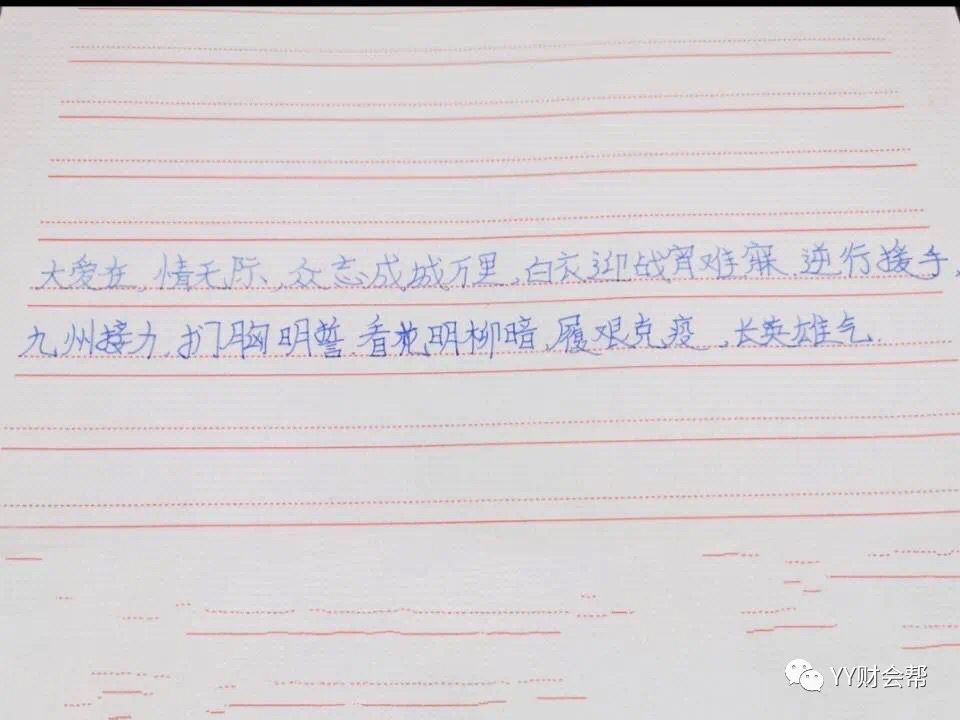 大爱在,情无际,众志成城万里,白衣迎战宵难寐.逆行援手,
九州接力,扪胸明誓.看花明柳暗,履艰克疫,长英雄气.
YY财会帮